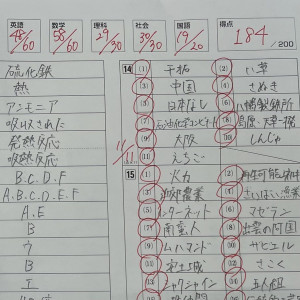 英語 数学 理科 社会 国語 得点
48/60 58/60 29/30 30/30 19/20 184/200
硫化鉄
熱
アンモニア
吸収された
発熱反応
吸熱反応
B.C.D.F
A.B.C.D.E.F
A.E
B
ウ
B
E
14 (1) 干拓 (2) 八草
(3) 中国 (4) さぬき
(5) 日本なし (6) 八幡製鉄所
(7) 石油化学コンビナート (8)
(9) 大阪 (10) しんしゅ
(11) えちご
15 (1) 火力 (2) 再生可能
(3) 近郊農業 (4) さいばい漁業
(5) インターネット (6) マゼラン
(7) 南蛮人 (8) 出雲の阿国
(9) ムハンマド (10) ザビエル
(11) 安土城 (12) さこく
(13) シャクシャイン (14) 五人組